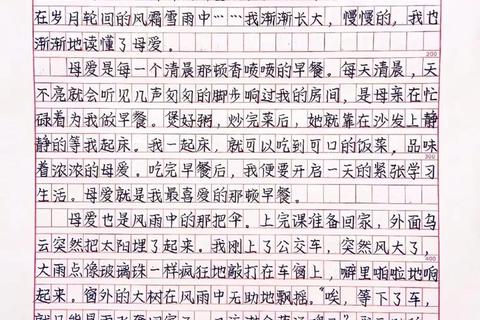 在岁月轮回的风霜雪雨中……我渐渐长大，慢慢的，我也
渐渐地读懂了母爱。
200
母爱是每一个清晨那顿香喷喷的早餐。每天清晨，天
不亮就会听见几声匆匆的脚步响过我的房间，是母亲在忙
碌着为我做早餐。煲好粥，炒完菜后，她就靠在沙发上静
静的等我起床。我一起床，就可以吃到可口的饭菜。品味
300
着浓浓的母爱。吃完早餐后，我便要开启一天的紧张学习
生活。母爱就是我最喜爱的那顿早餐。
母爱也是风雨中的那把伞。上完课准备回家，外面乌
云突然把太阳埋了起来。我刚上了公交车，突然风大了，
400
大雨点像玻璃珠一样疯狂地敲打在车窗上，噼里啪啦地响
起来。窗外的大树在风雨中无助地飘摇。“唉，等下了车，